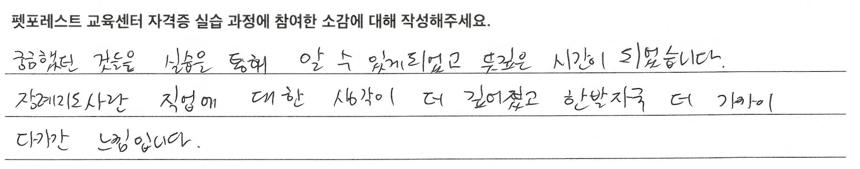 펫포레스트 교육센터 자격증 실습 과정에 참여한 소감에 대해 작성해주세요.
궁금했던 것들을 실습을 통해 알 수 있게되었고 뜻깊은 시간이 되었습니다.
장례지도사란 직업에 대한 생각이 더 깊어졌고 한발자국 더 가까이
다가간 느낌입니다.